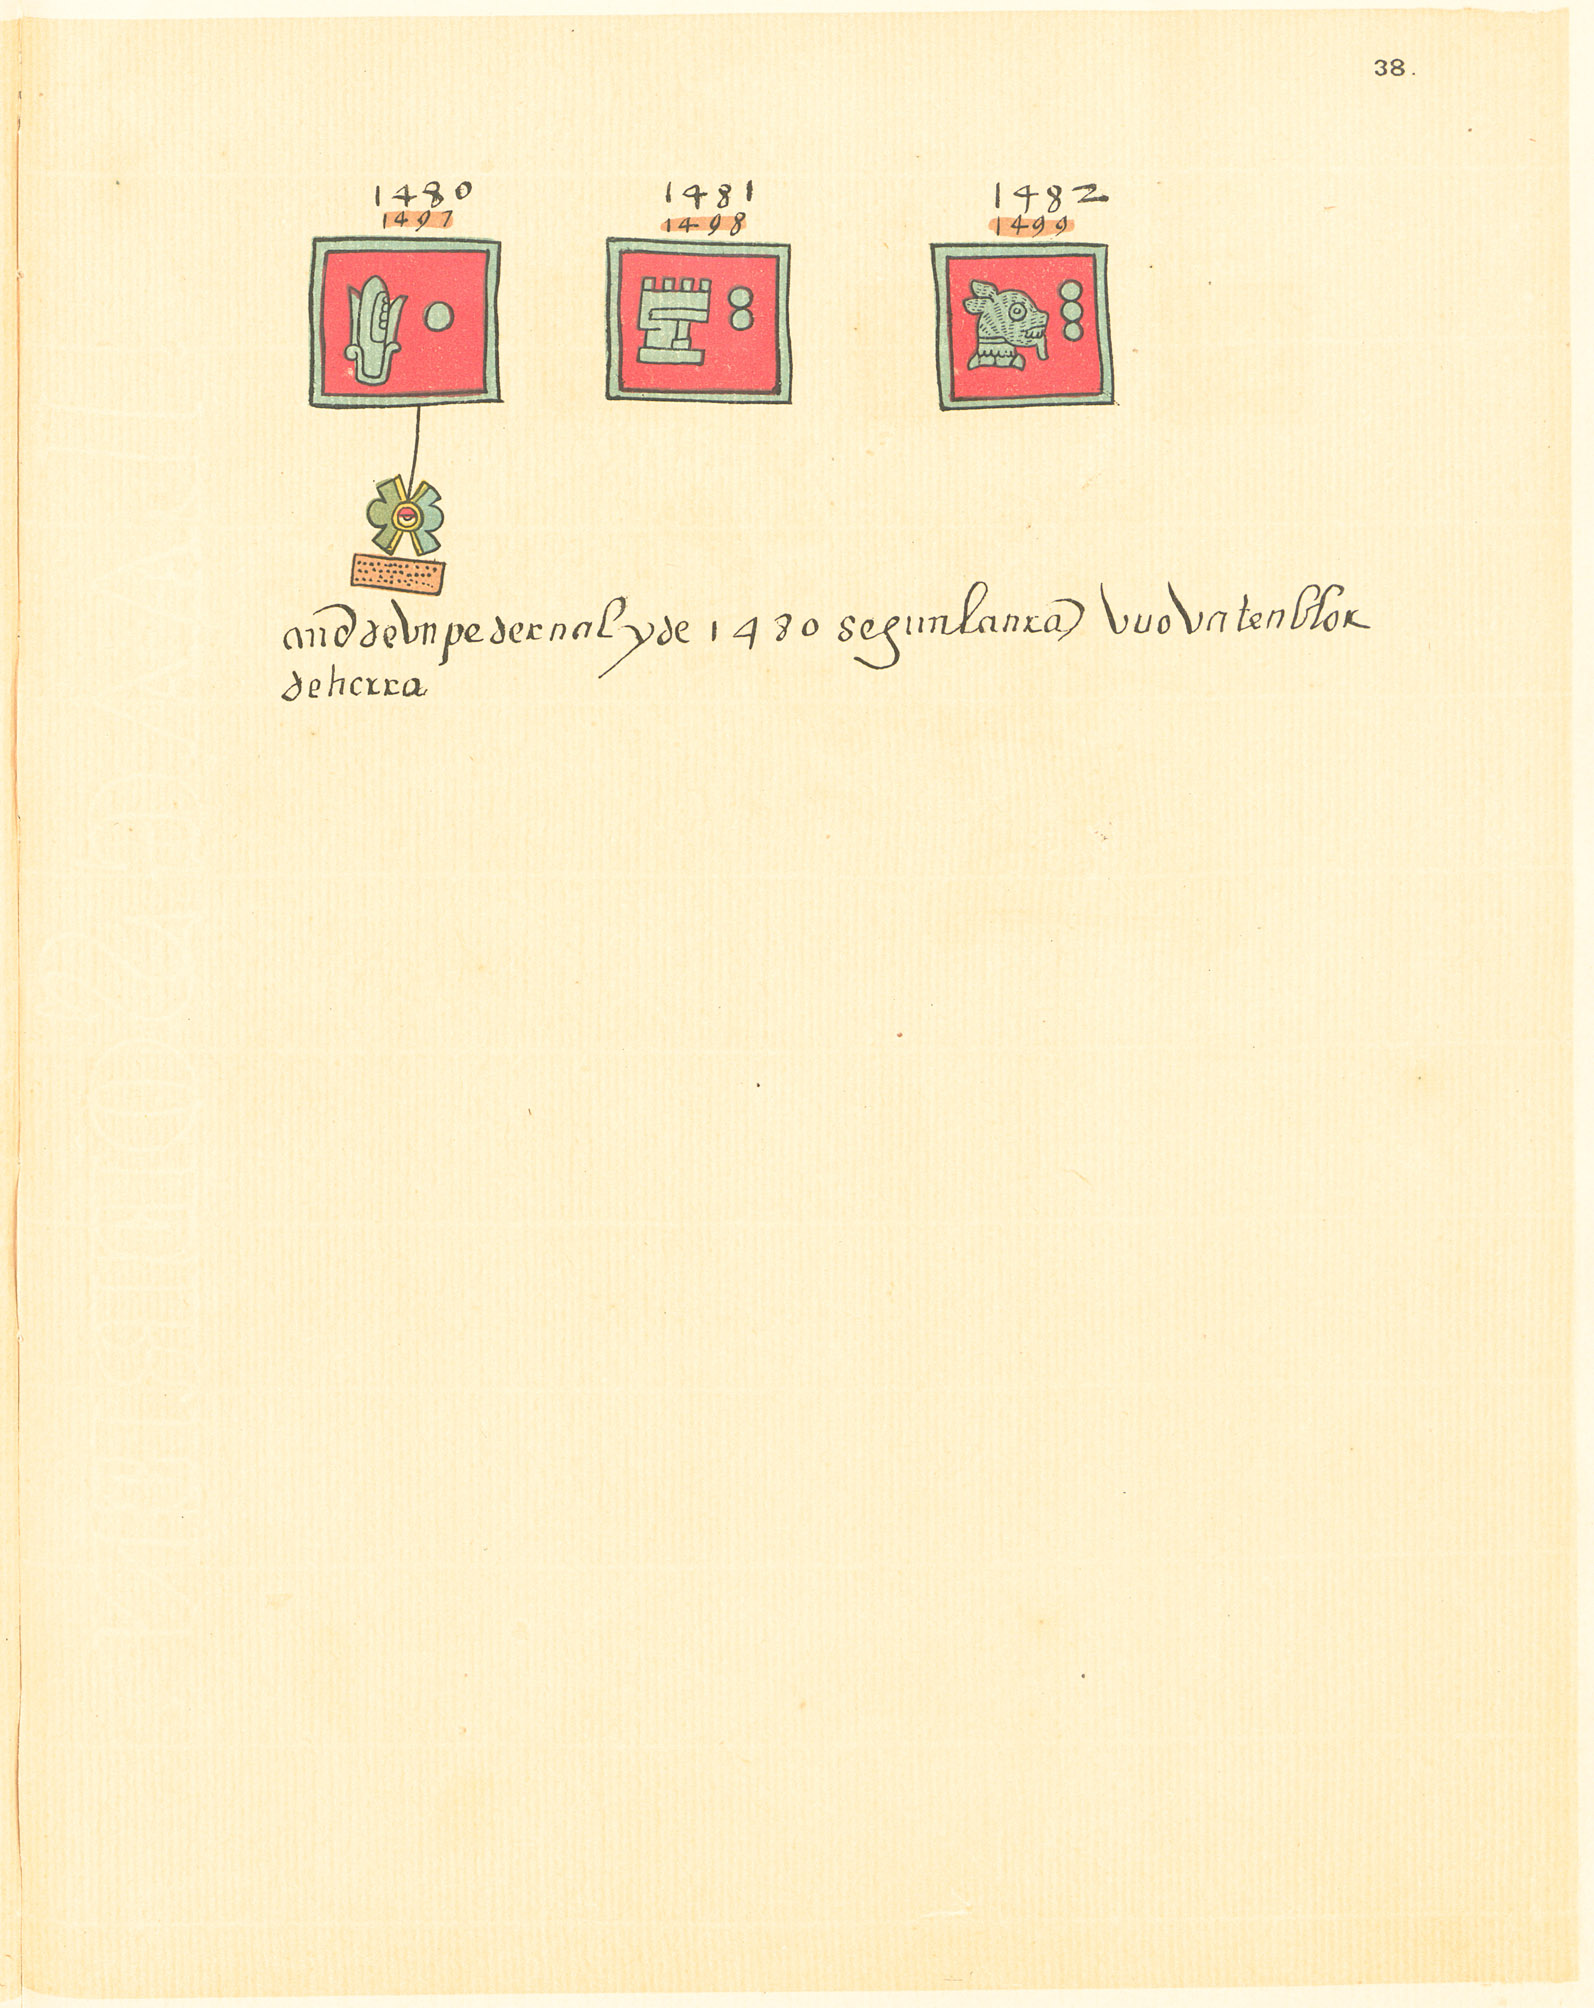 38.
1480 1481 1482
1497 1498 1499
año de vn pedernal y de 1480 segun la nra vuo vn tenblor
de tierra